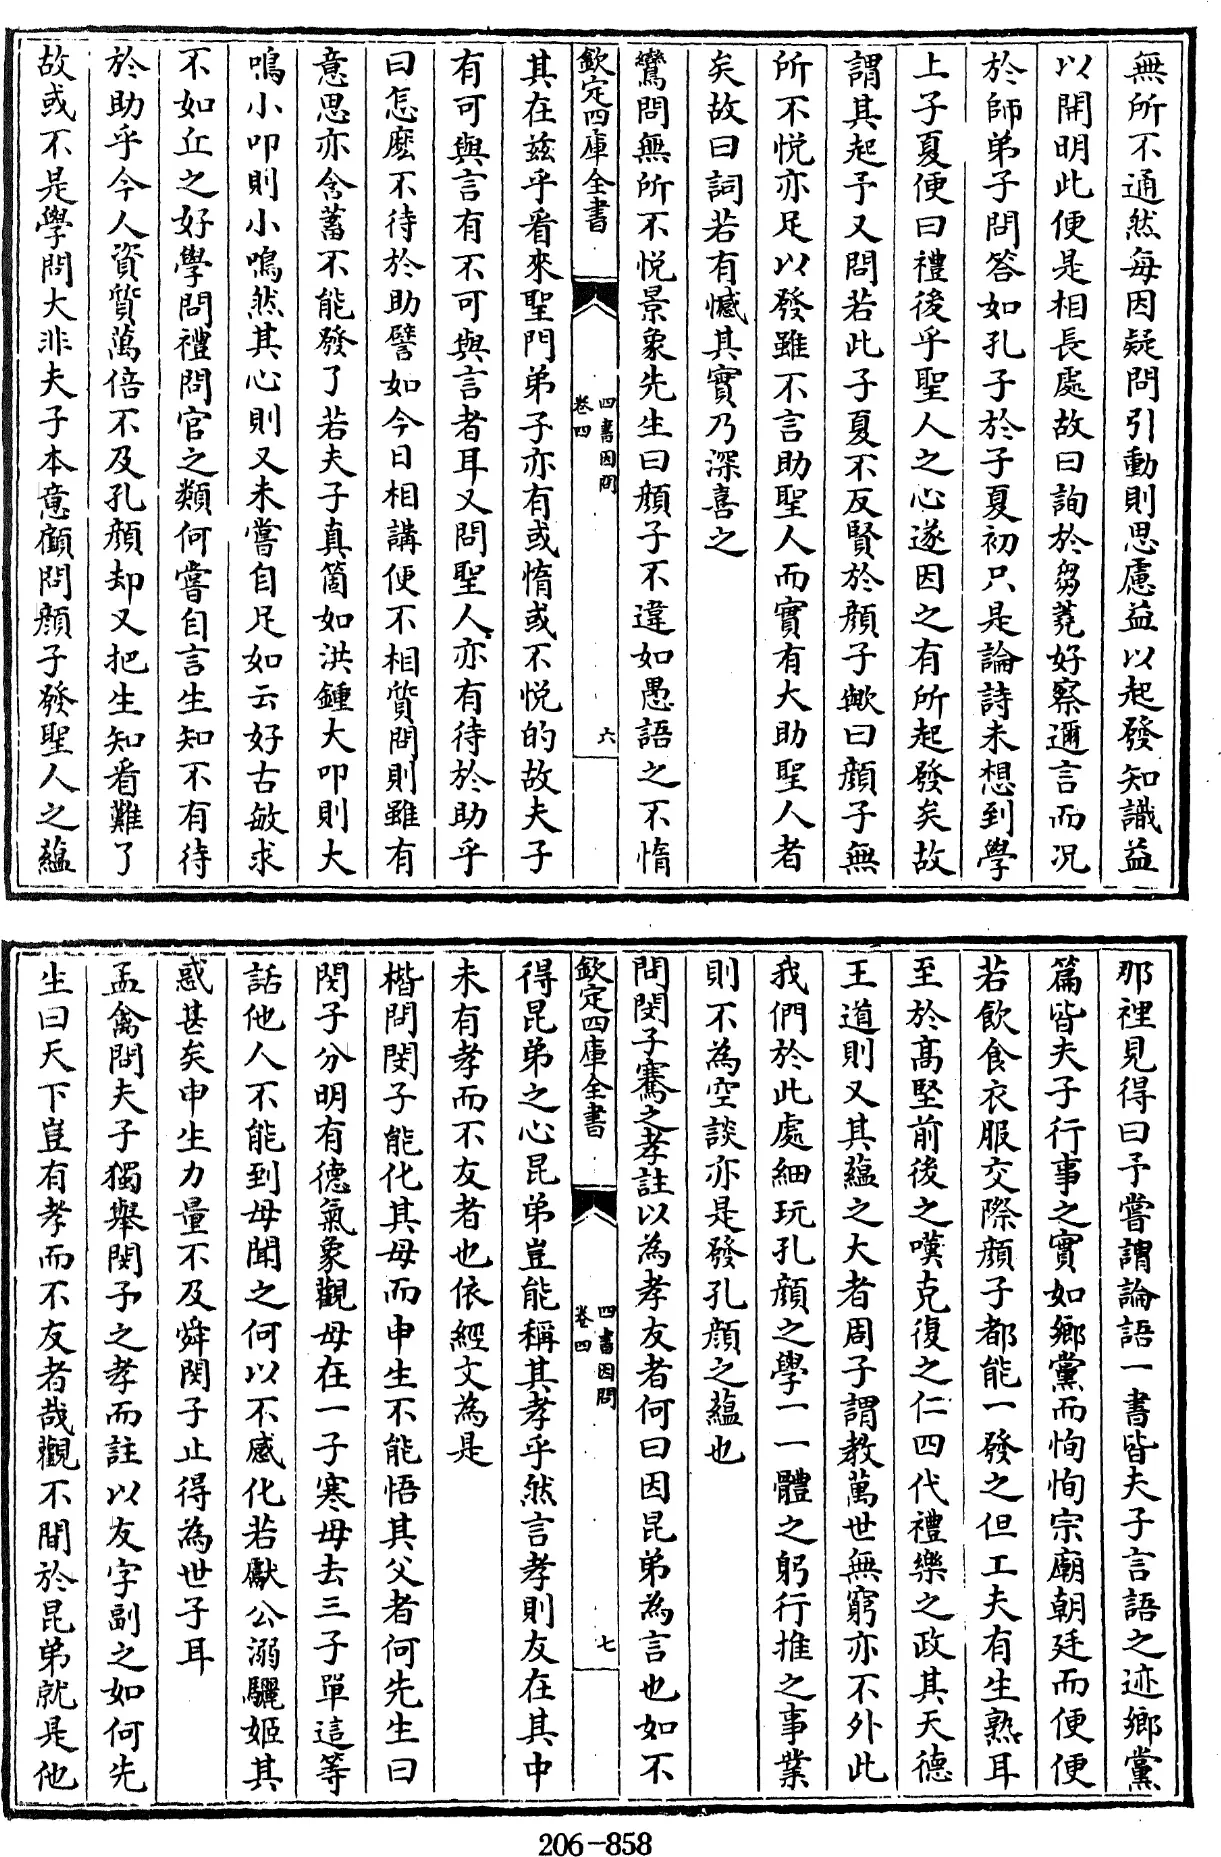 無所不通然每因疑問引動則思慮益以起發知識益
以開明此便是相長處故曰詢於芻蕘好察邇言而况
於師弟子問答如孔子於子夏初只是論詩未想到學
上子夏便曰禮後乎聖人之心遂因之有所起發矣故
謂其起予又問若此子夏不反賢於顔子歟曰顔子無
所不悦亦足以發雖不言助聖人而實有大助聖人者
矣故曰詞若有憾其實乃深喜之
鸞問無所不悦景象先生曰顔子不違如愚語之不惰
欽定四庫全書
四書因問
卷四
六
其在兹乎看來聖門弟子亦有或惰或不悦的故夫子
有可與言有不可與言者耳又問聖人亦有待於助乎
曰怎麽不待於助譬如今日相講便不相質問則雖有
意思亦含蓄不能發了若夫子真箇如洪鍾大叩則大
鳴小叩則小鳴然其心則又未嘗自足如云好古敏求
不如丘之好學問禮問官之類何嘗自言生知不有待
於助乎今人資質萬倍不及孔顔却又把生知看難了
故或不是學問大非夫子本意顧問顔子發聖人之藴
那裡見得曰予嘗謂論語一書皆夫子言語之迹鄉黨
篇皆夫子行事之實如鄉黨而恂恂宗廟朝廷而便便
若飲食衣服交際顔子都能一發之但工夫有生熟耳
至於髙堅前後之嘆克復之仁四代禮樂之政其天德
王道則又其藴之大者周子謂教萬世無窮亦不外此
我們於此處細玩孔顔之學一一體之躬行推之事業
則不為空談亦是發孔顔之藴也
問閔子騫之孝註以為孝友者何曰因昆弟為言也如不
欽定四庫全書
四書因問
卷四
七
得昆弟之心昆弟豈能稱其孝乎然言孝則友在其中
未有孝而不友者也依經文為是
楷問閔子能化其母而申生不能悟其父者何先生曰
閔子分明有德氣象觀母在一子寒母去三子單這等
話他人不能到母聞之何以不感化若獻公溺驪姬其
惑甚矣申生力量不及舜閔子止得為世子耳
孟禽問夫子獨舉閔子之孝而註以友字副之如何先
生曰天下豈有孝而不友者哉觀不間於昆弟就是他
206-858